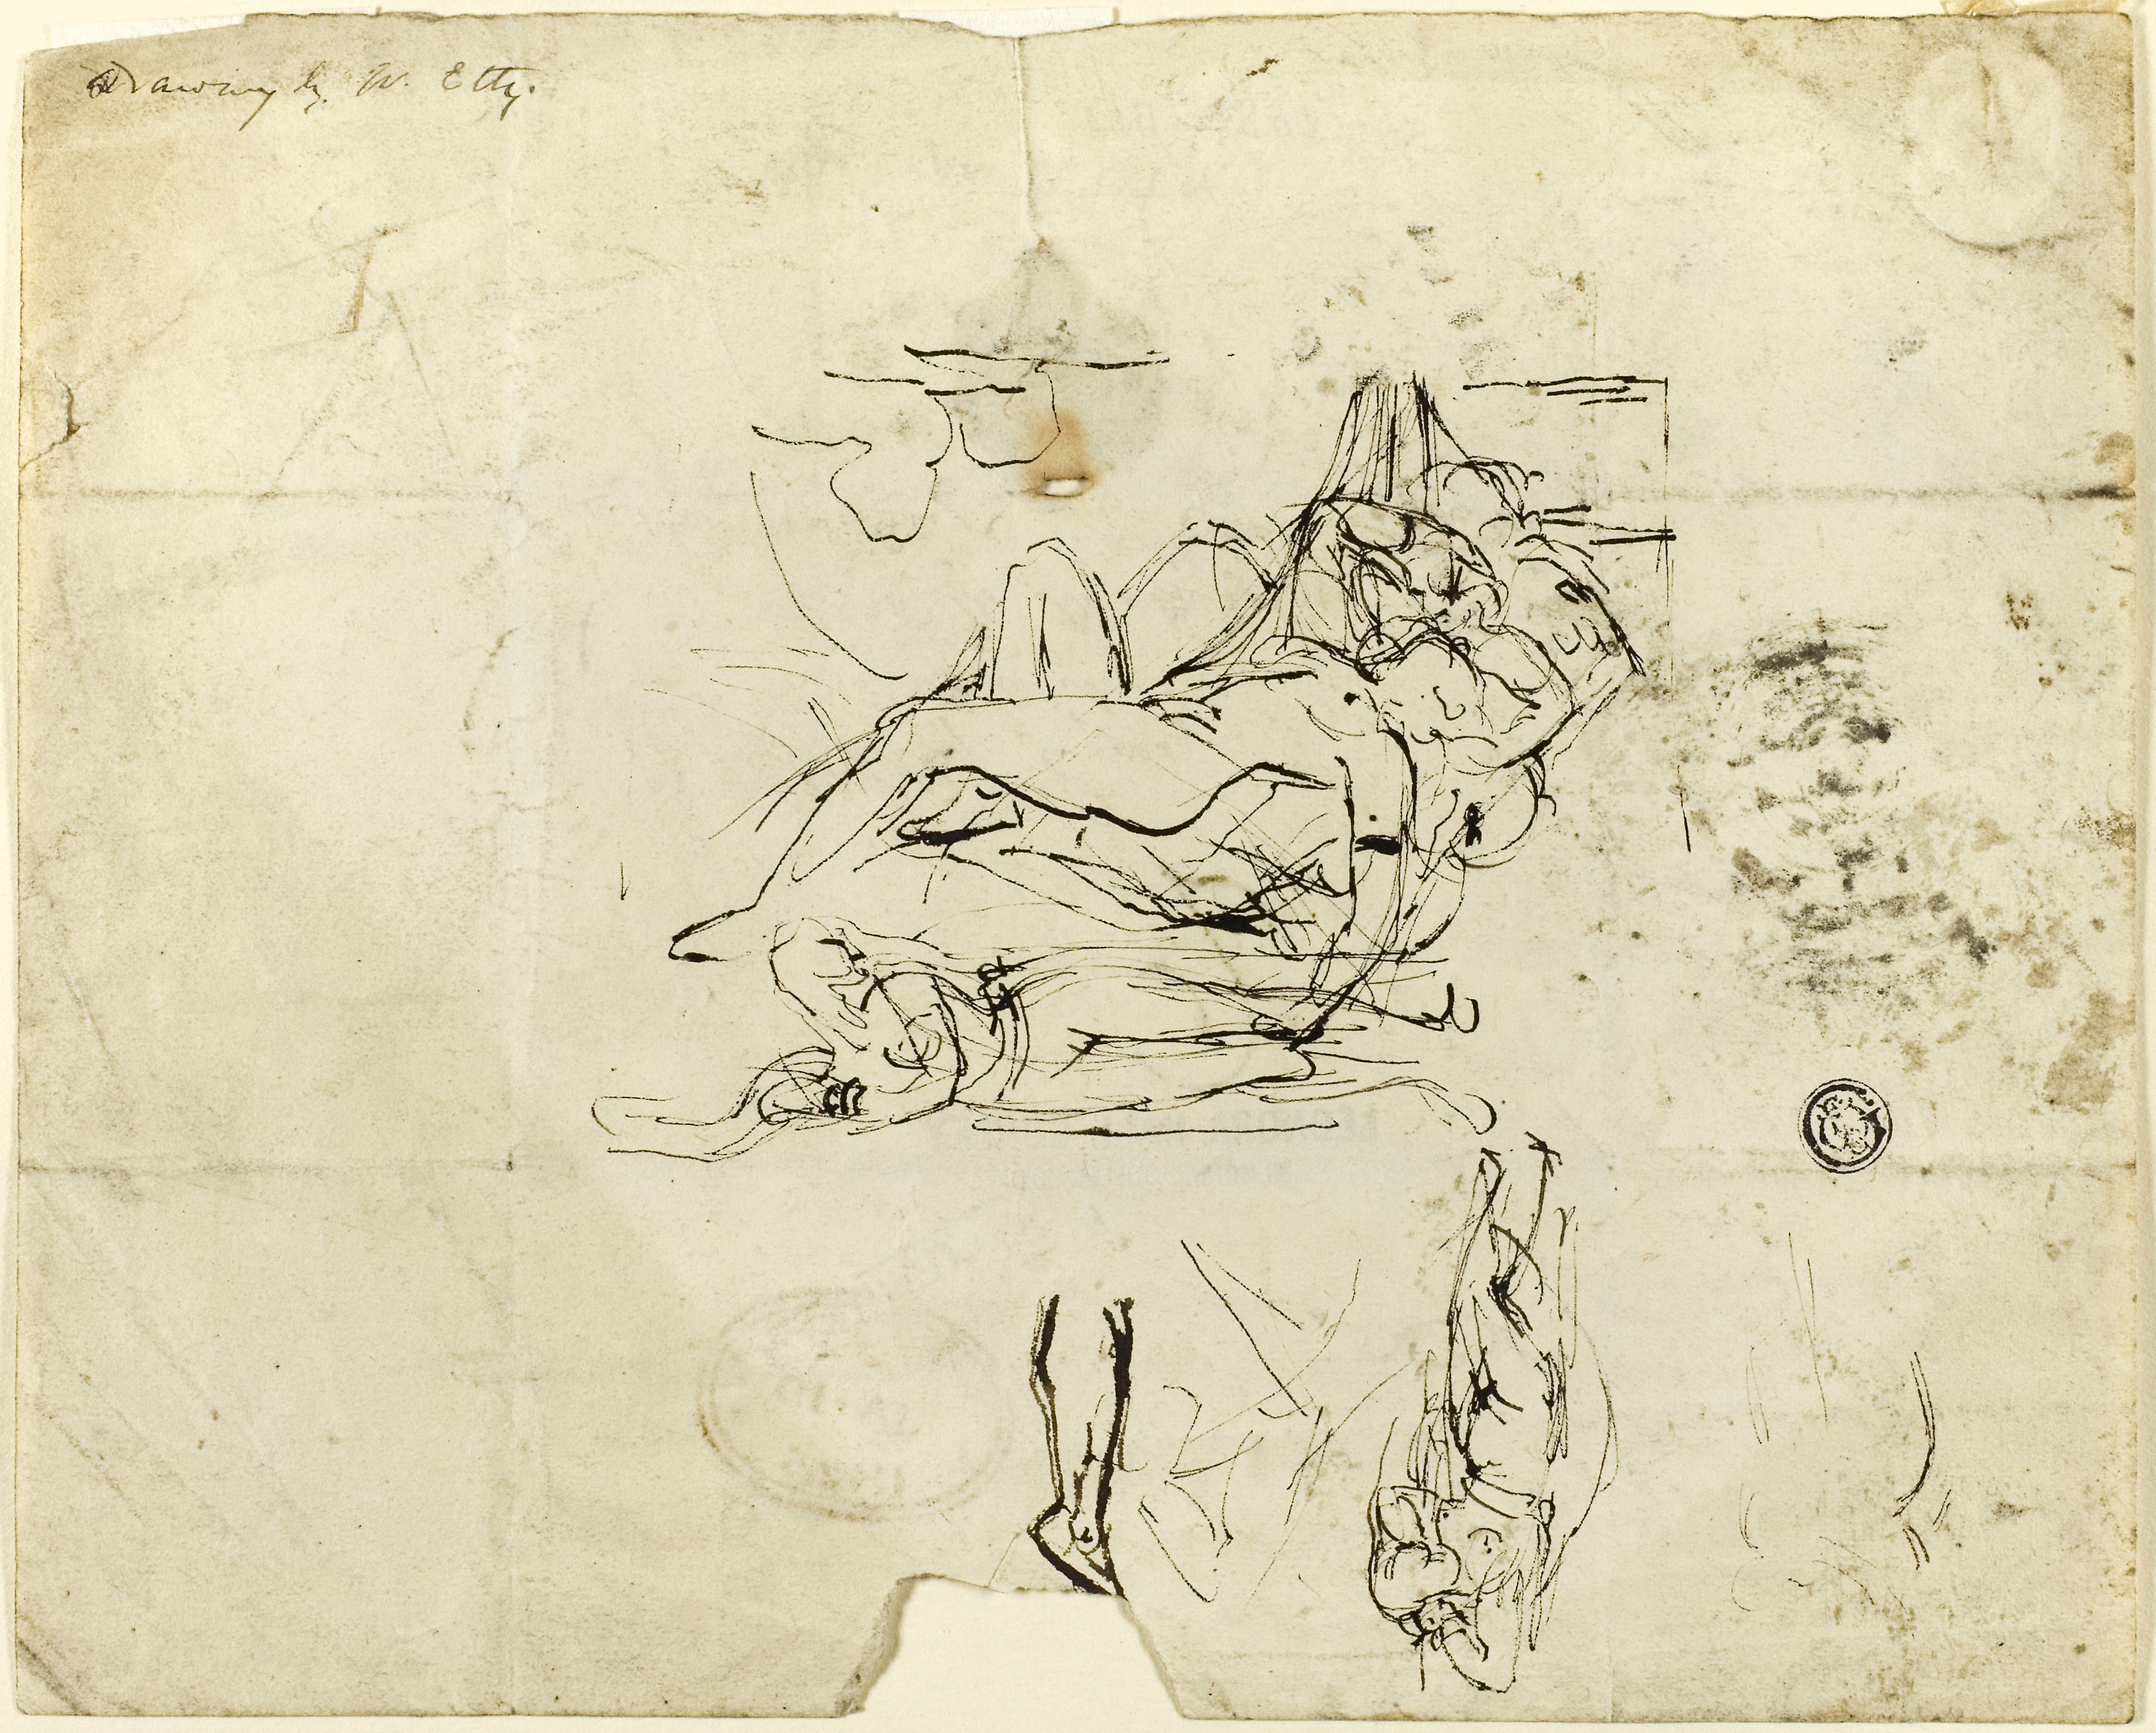 Drawing by W. Etty.